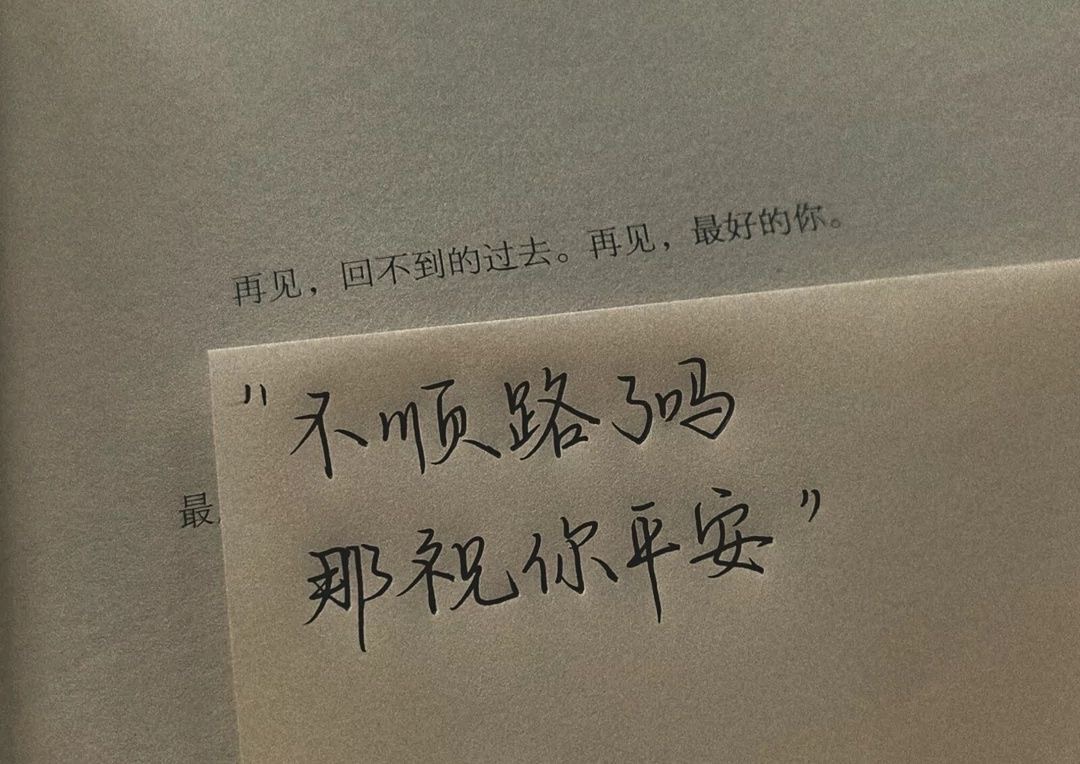 再见，回不到的过去。再见，最好的你。
"不顺路了吗
最
那祝你平安"